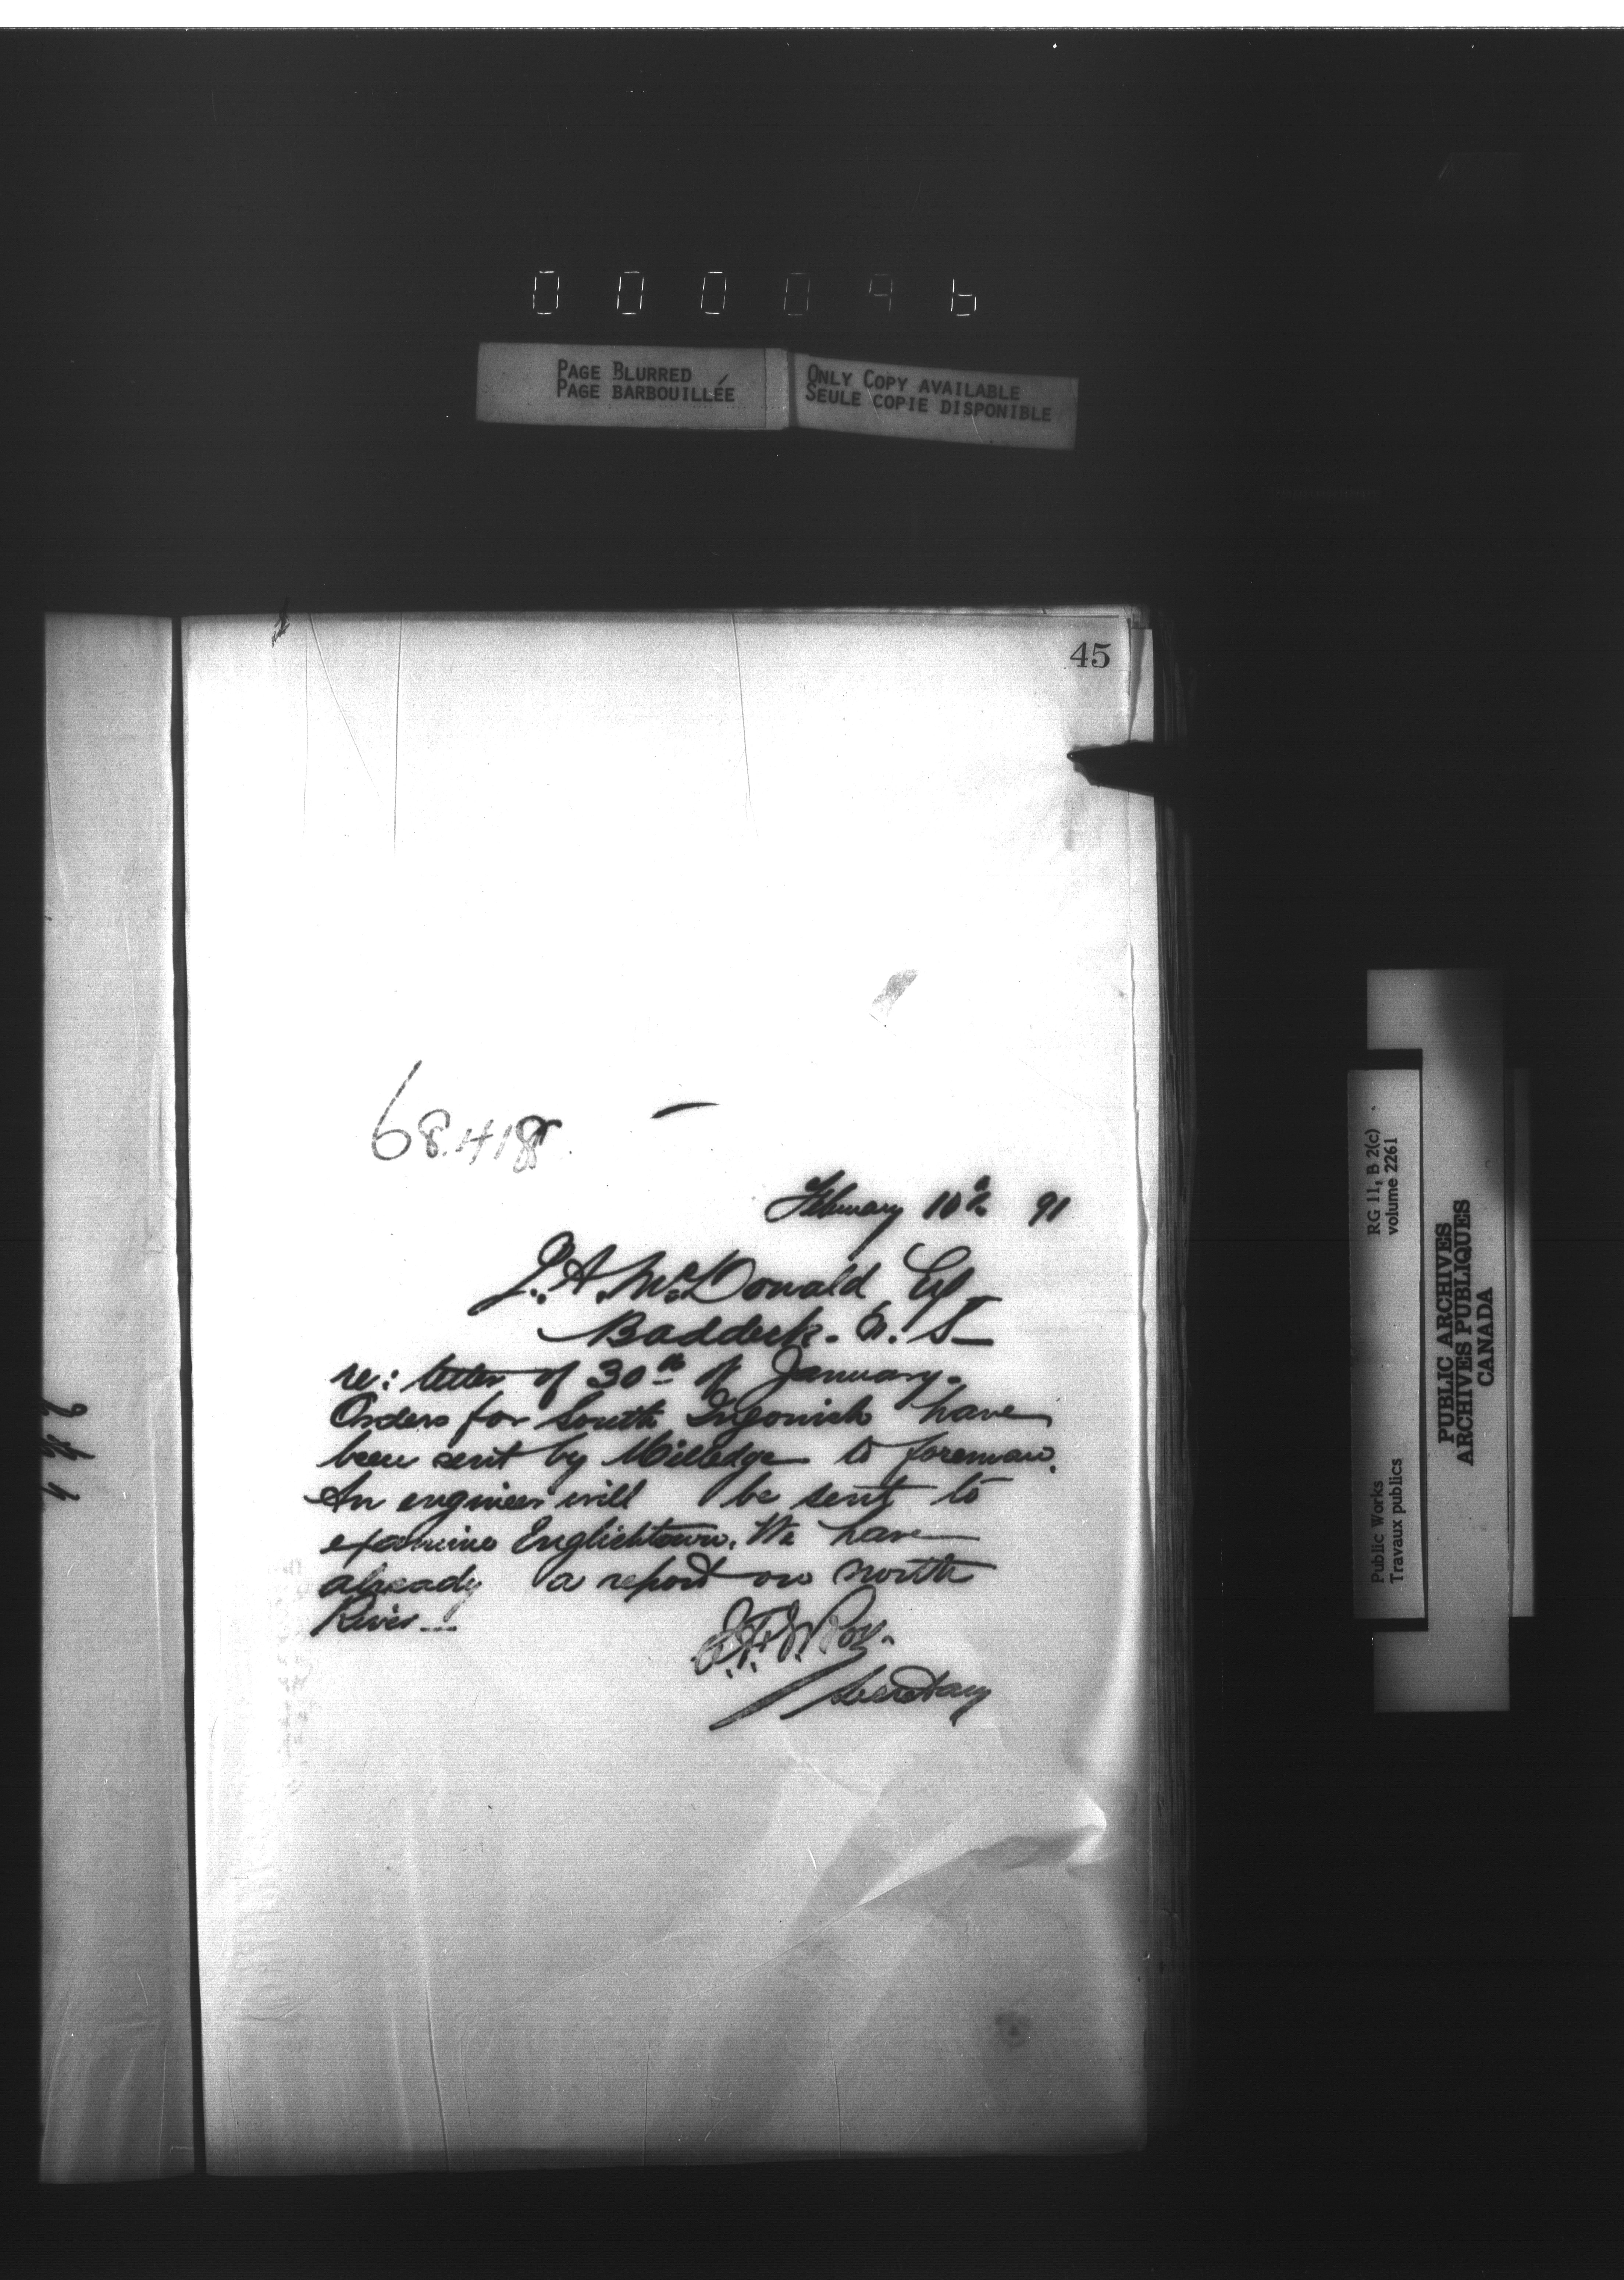 0 0 0 0 9 6
PAGE BLURRED
PAGE BARBOUILLÉE
ONLY COPY AVAILABLE
SEULE COPIE DISPONIBLE
45
68.418
February 10th 91
J. A. McDonald Esq
Baddeck. N. S.
re: letter of 30th of January.
Orders for South Ingonish have
been sent by Milledge to foreman.
An engineer will be sent to
examine Englishtown. We have
already a report on north
River
E.F.E. Roy.
Secretary
RG 11, B 2(c)
volume 2261
Public Works
Travaux publics
PUBLIC ARCHIVES
ARCHIVES PUBLIQUES
CANADA